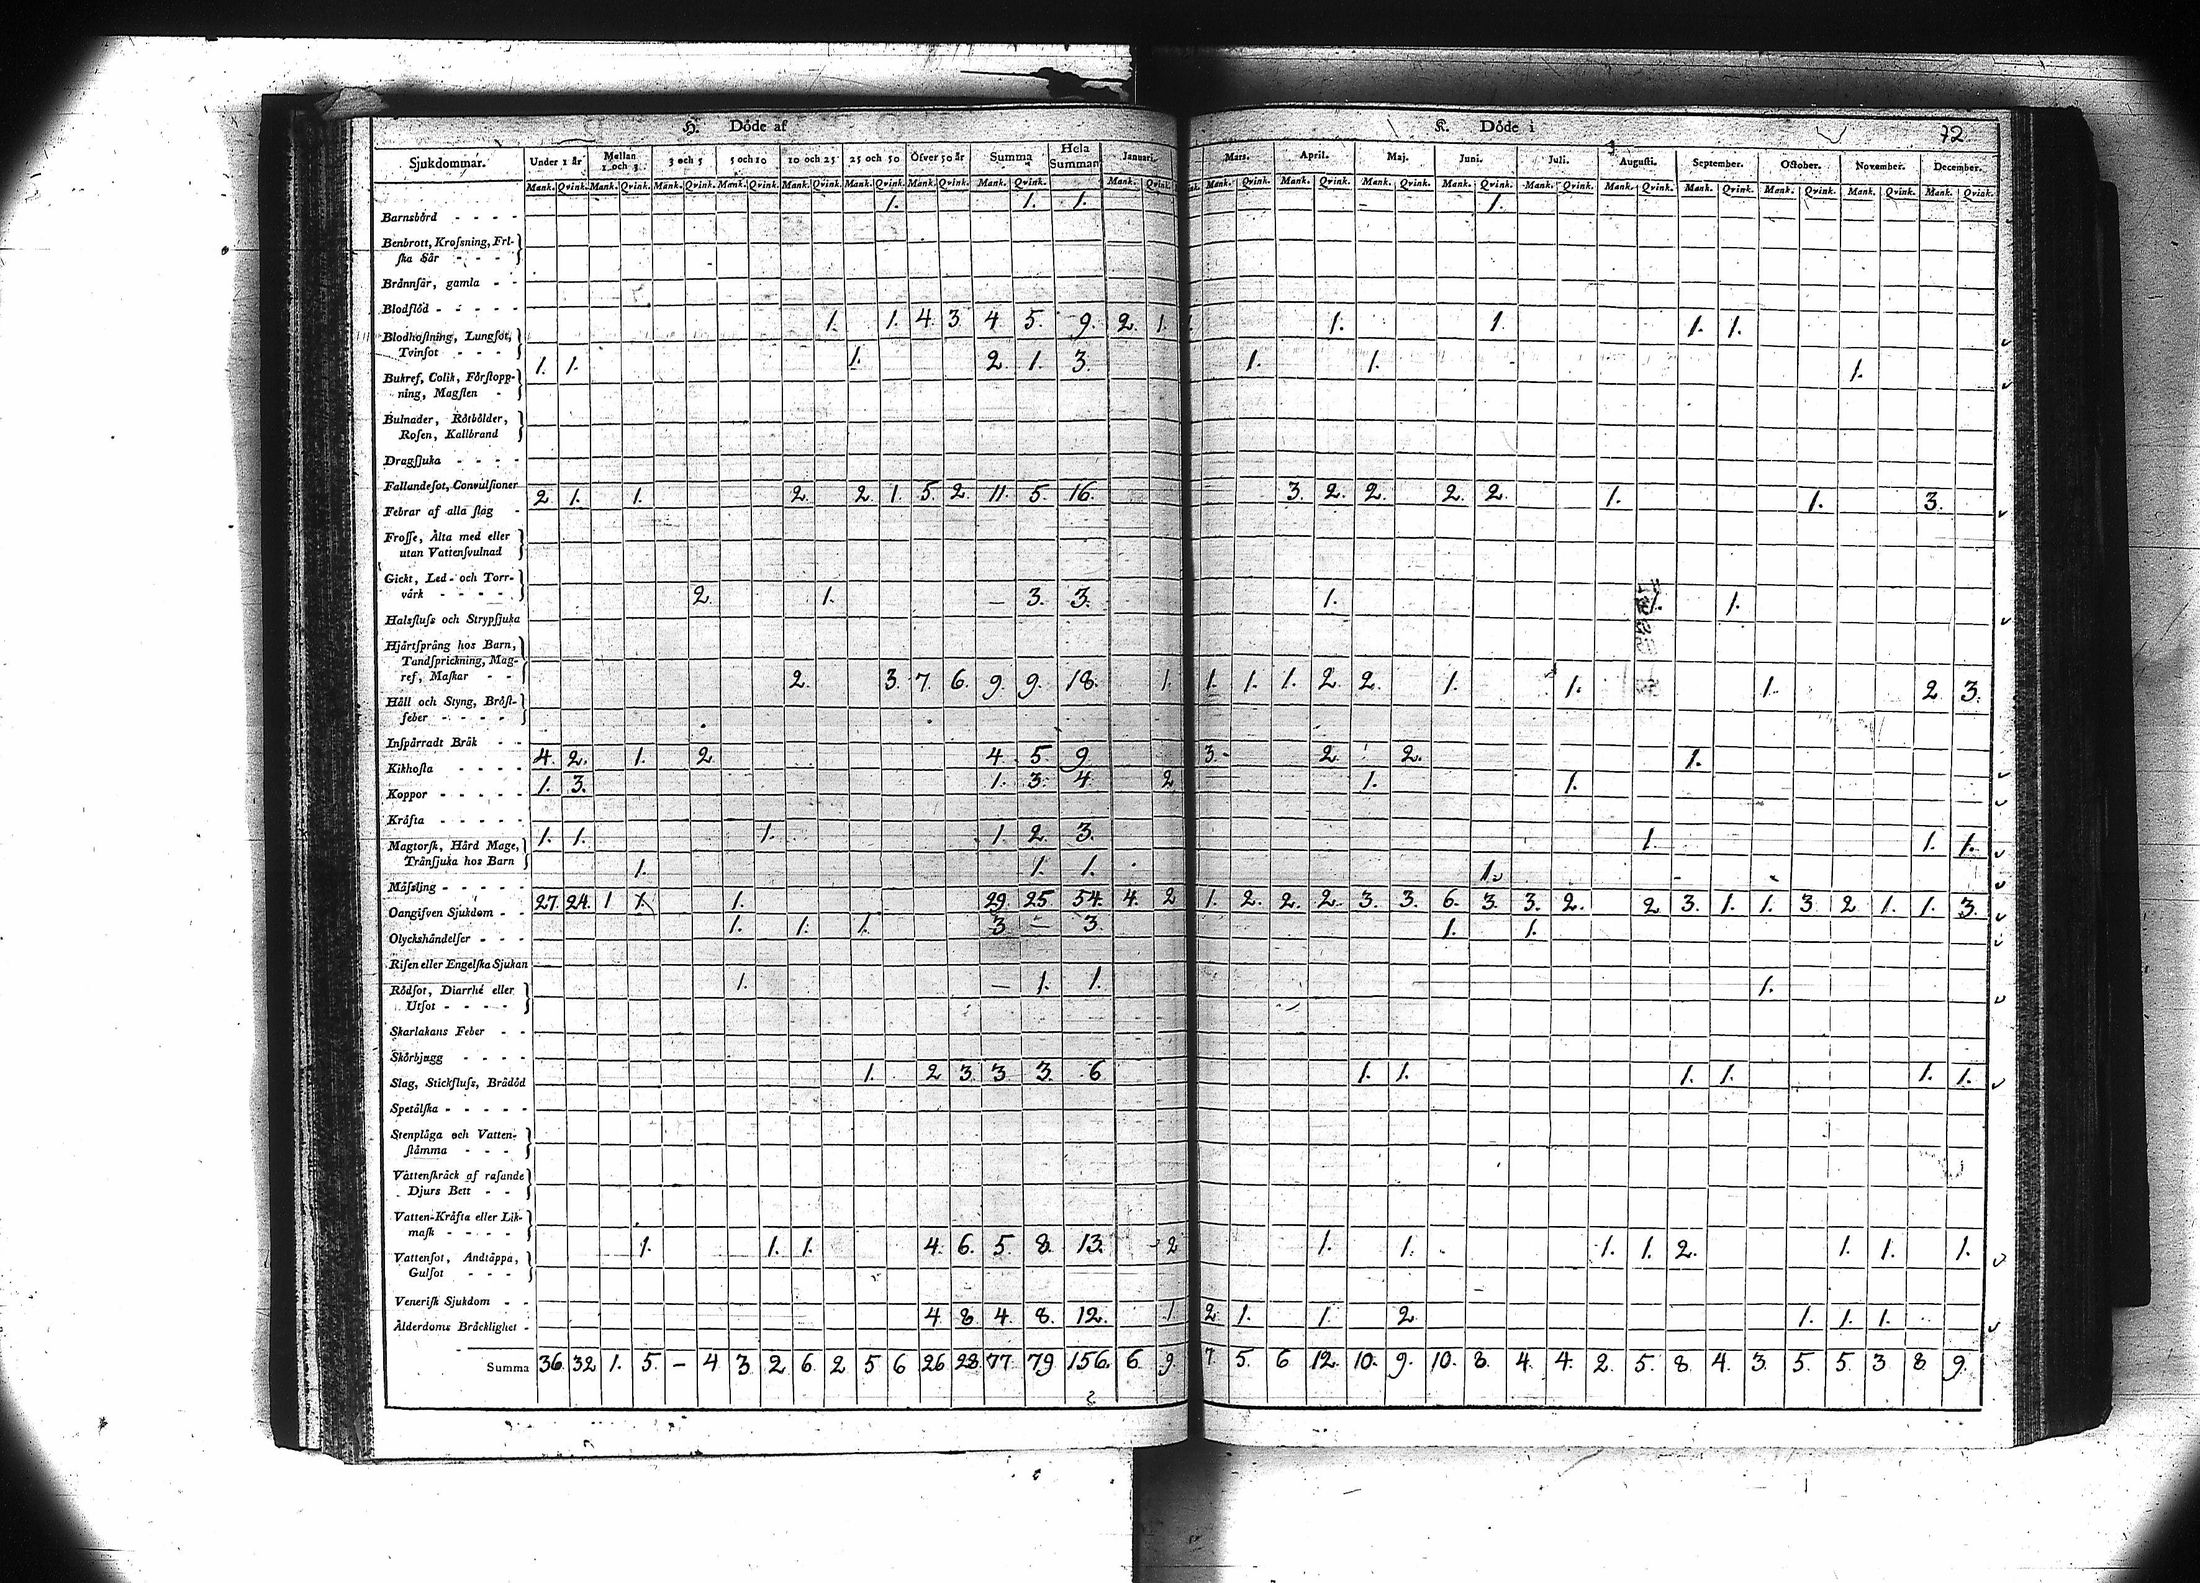 H. Döde af
K. Döde i 72
Sjukdommar. Under 1 år Mellan 1 och 3 3 och 5 5 och 10 10 och 25 25 och 50 Öfver 50 år Summa Hela Summan Januari. Mars. April. Maj. Juni. Juli. Augusti. September. October. November. December.
Mank. Qvink. Mank. Qvink. Mank. Qvink. Mank. Qvink. Mank. Qvink. Mank. Qvink. Mank. Qvink. Mank. Qvink. Mank. Qvink. Mank. Qvink. Mank. Qvink. Mank. Qvink. Mank. Qvink. Mank. Qvink. Mank. Qvink. Mank. Qvink. Mank. Qvink. Mank. Qvink. Mank. Qvink.
Barnsbörd - - - - 1. 1. 1. 1.
Benbrott, Krosning, Fri-
ska Sår - - - -
Brännsår, gamla - -
Blodflöd - - - - -
Blodhostning, Lungsot, 1. 1. 4. 3. 4 5. 9. 2. 1. 1. 1. 1. 1.
Tvinsot - - - -
Bukref, Colik, Förstopp- 1. 1. 1. 2. 1. 3. 1. 1. 1.
ning, Magsten -
Bulnader, Rötbölder,
Rosen, Kallbrand
Dragsjuka - - - -
Fallandesot, Convulsioner
Febrar af alla slag - 2 1. 1. 2. 2. 1. 5. 2. 11. 5. 16. 3. 2. 2. 2. 2. 1. 1. 3.
Frosse, Älta med eller
utan Vattensvulnad
Gickt, Led- och Torr-
värk - - - - -
Halsfluss och Strypsjuka 2. 1. — 3. 3. 1. 1. 1.
Hjärtsprång hos Barn,
Tandsprickning, Mag-
ref, Maskar - -
Håll och Styng, Bröst- 2. 3. 7. 6. 9. 9. 18. 1. 1. 1. 1. 2. 2. 1. 1. 1. 2 3.
feber - - - - -
Inspärradt Bråk - -
Kikhosta - - - - 4. 2. 1. 2 4. 5 9 3. 2 2. 1.
Koppor - - - - - 1. 3. 1. 3. 4. 2 1. 1.
Kräfta - - - - -
Magtorsk, Hård Mage, 1. 1. 1. 1. 2. 3. 1. 1. 1.
Trånsjuka hos Barn
Mässling - - - - - 1. 1. 1. 1.
Oangifven Sjukdom - - 27. 24. 1 1. 1. 29. 25 54. 4. 2 1. 2. 2. 2. 3. 3. 6. 3. 3. 2. 2 3. 1. 1. 3. 2 1. 1. 3.
Olyckshändelser - - - 1. 1. 1. 3 — 3 1. 1.
Risen eller Engelska Sjukan
Rödsot, Diarrhé eller 1. — 1. 1. 1.
Utsot - - - - -
Skarlakans Feber - -
Skörbjugg - - - -
Slag, Stickfluss, Brådöd 1. 2 3. 3. 3. 6 1. 1. 1. 1. 1. 1.
Spetälska - - - - -
Stenplåga och Vatten-
stämma - - - -
Vattenskräck af rasande
Djurs Bett - -
Vatten-Kräfta eller Lik-
mask - - - -
Vattensot, Andtäppa, 1. 1. 1. 4. 6. 5. 8. 13. 2 1. 1. 1. 1. 2. 1. 1. 1.
Gulsot - - - -
Venerisk Sjukdom - -
Ålderdoms Bräcklighet - 4. 8. 4. 8. 12. 1 2. 1. 1. 2 1. 1. 1.
Summa 36. 32 1. 5. – 4 3 2 6. 2 5 6 26 28. 77. 79 156. 6. 9. 7. 5. 6 12. 10. 9. 10. 8. 4. 4. 2. 5. 8. 4. 3. 5. 5. 3 8. 9.